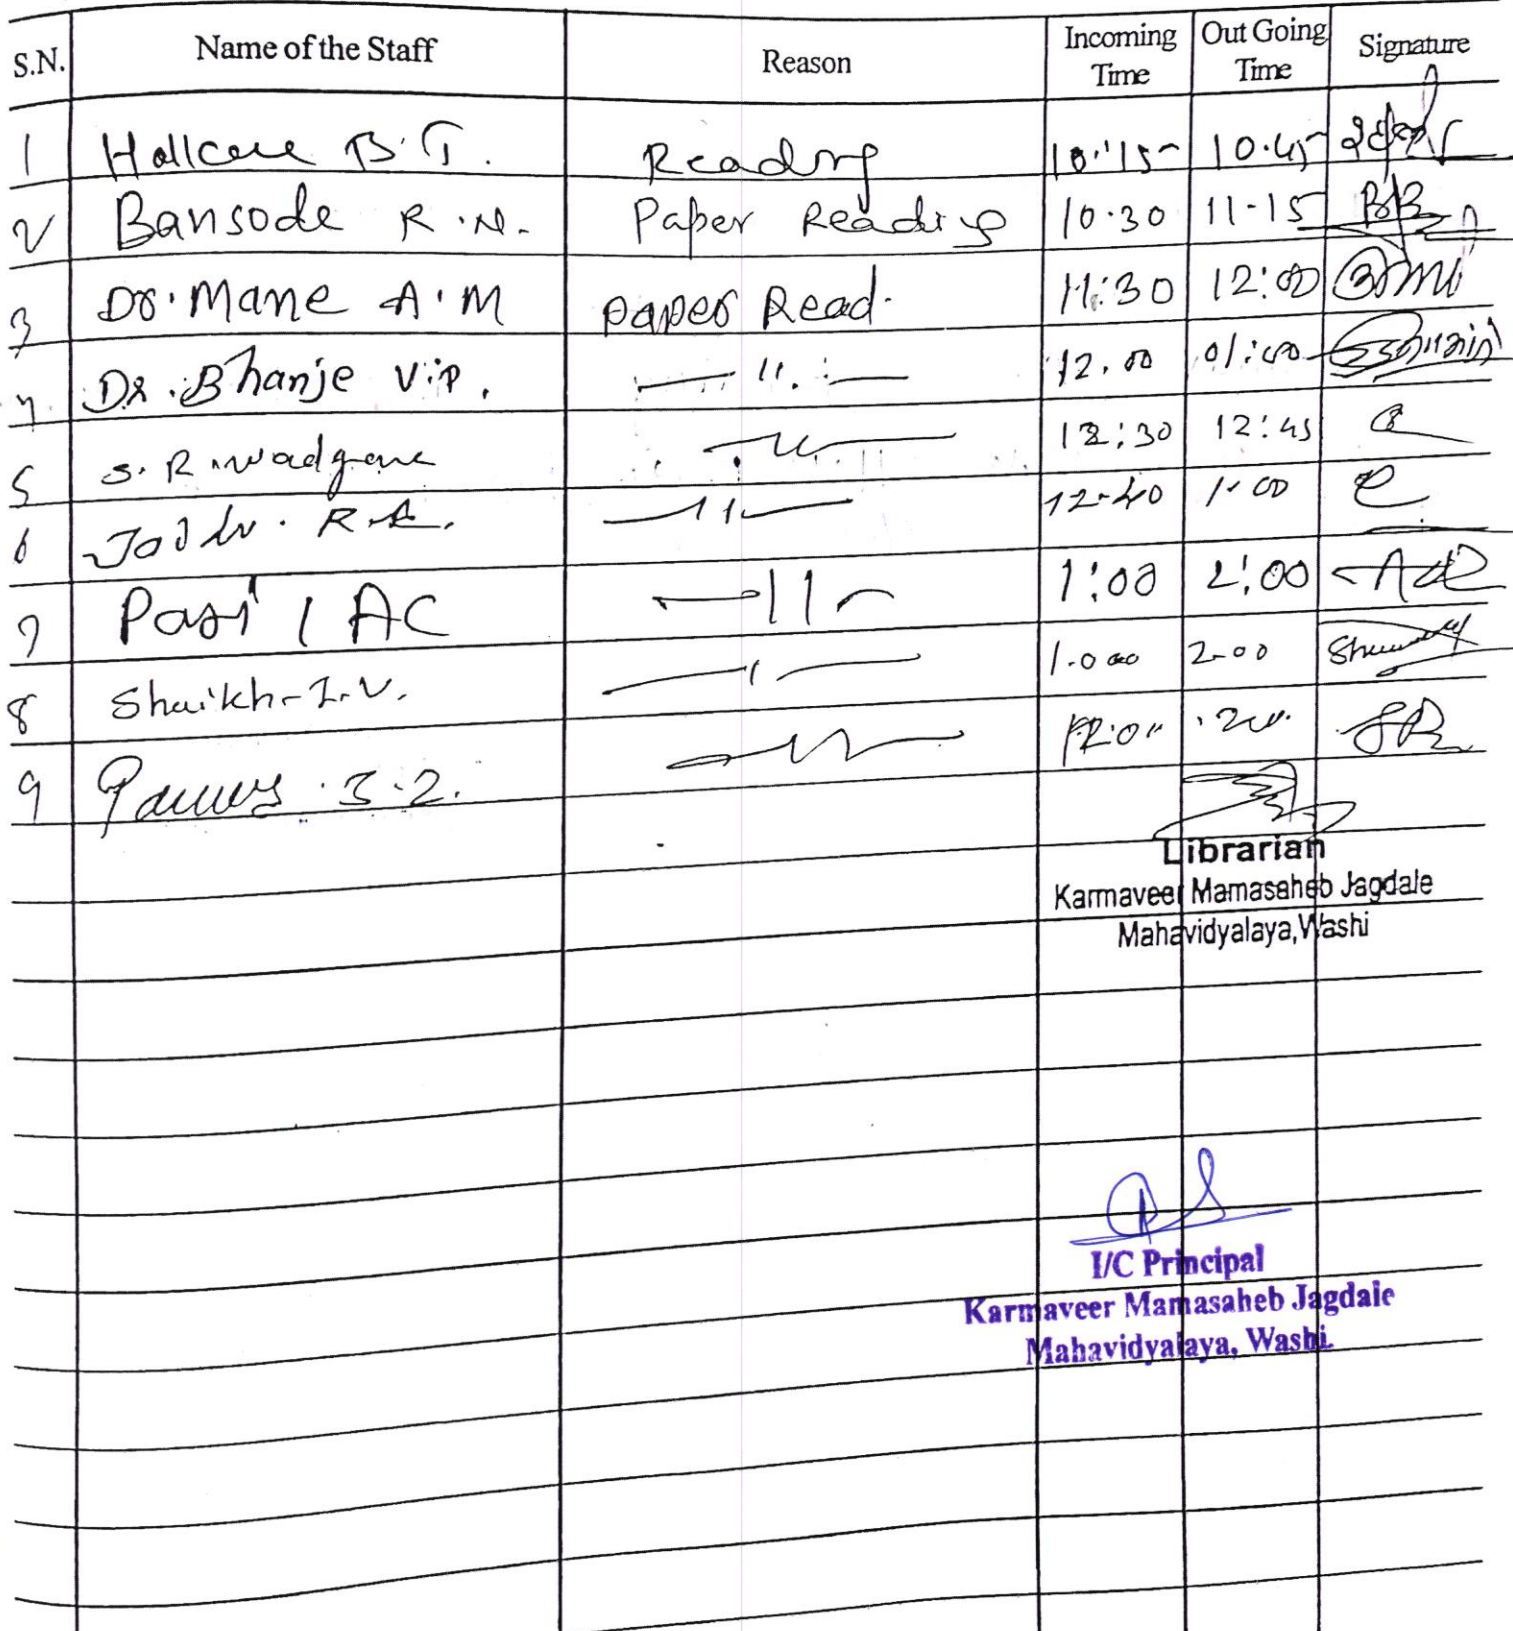 S.N. Name of the Staff Reason Incoming Time Out Going Time Signature
1 B.T. Reading 10:15 10.45
2 Bansode R.N. Paper Reading 10.30 11-15
3 Dr. Mane A.M Paper Read. 11:30 12:00
4 Dr. Bhanje V.P. —"— 12.00 01:00
5 S.R. —"— 12:30 12:45
6 —"— 12-40 1-00
7 —"— 1:00 2:00
8 Shaikh —"— 2-00
9 —"—
Librarian
Karmaveer Mamasaheb Jagdale
Mahavidyalaya, Washi
I/C Principal
Karmaveer Mamasaheb Jagdale
Mahavidyalaya, Washi.